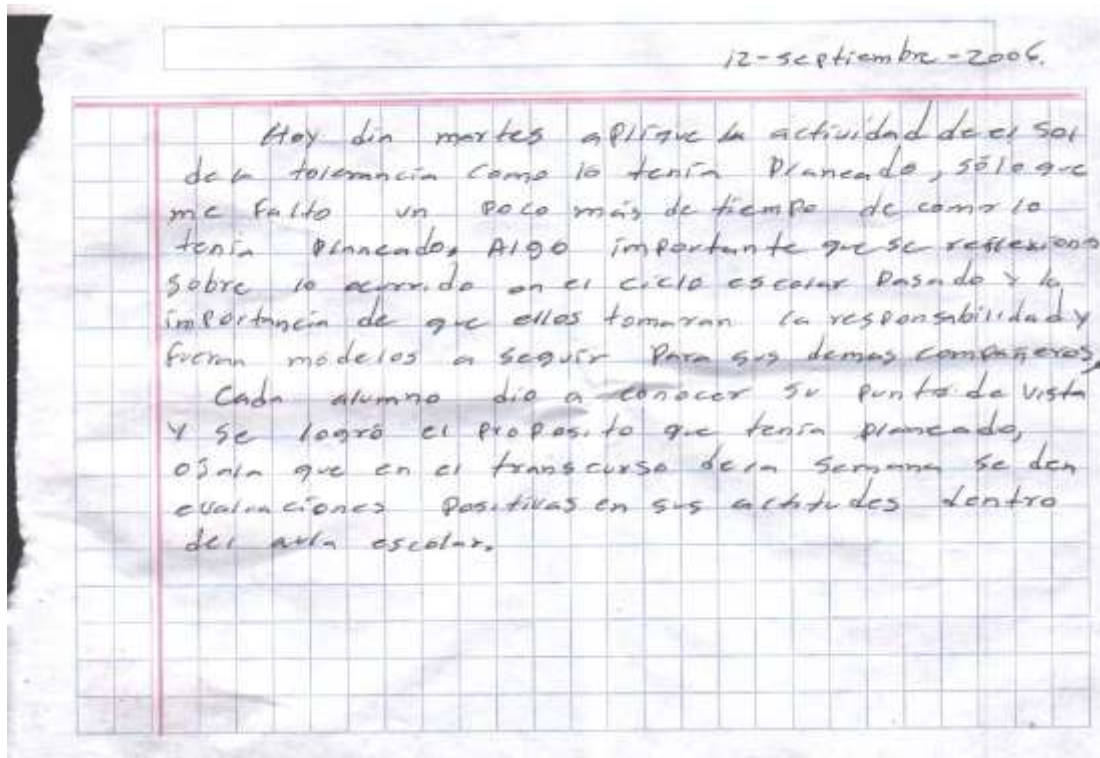 12-septiembre-2006.
Hoy dia martes aplique la actividad de el sol
de la tolerancia como lo tenía Planeado, sólo que
me Falto un Poco más de tiempo de como lo
tenía planeado, Algo importante que se reflexiono
sobre lo ocurrido en el ciclo escolar Pasado y la
importancia de que ellos tomaran la responsabilidad y
fueran modelos a seguir Para sus demas compañeros,
Cada alumno dio a conocer su punto de vista
Y se logró el proposito que tenía planeado,
ojala que en el transcurso de la semana se den
evaluaciones positivas en sus actitudes dentro
del aula escolar.